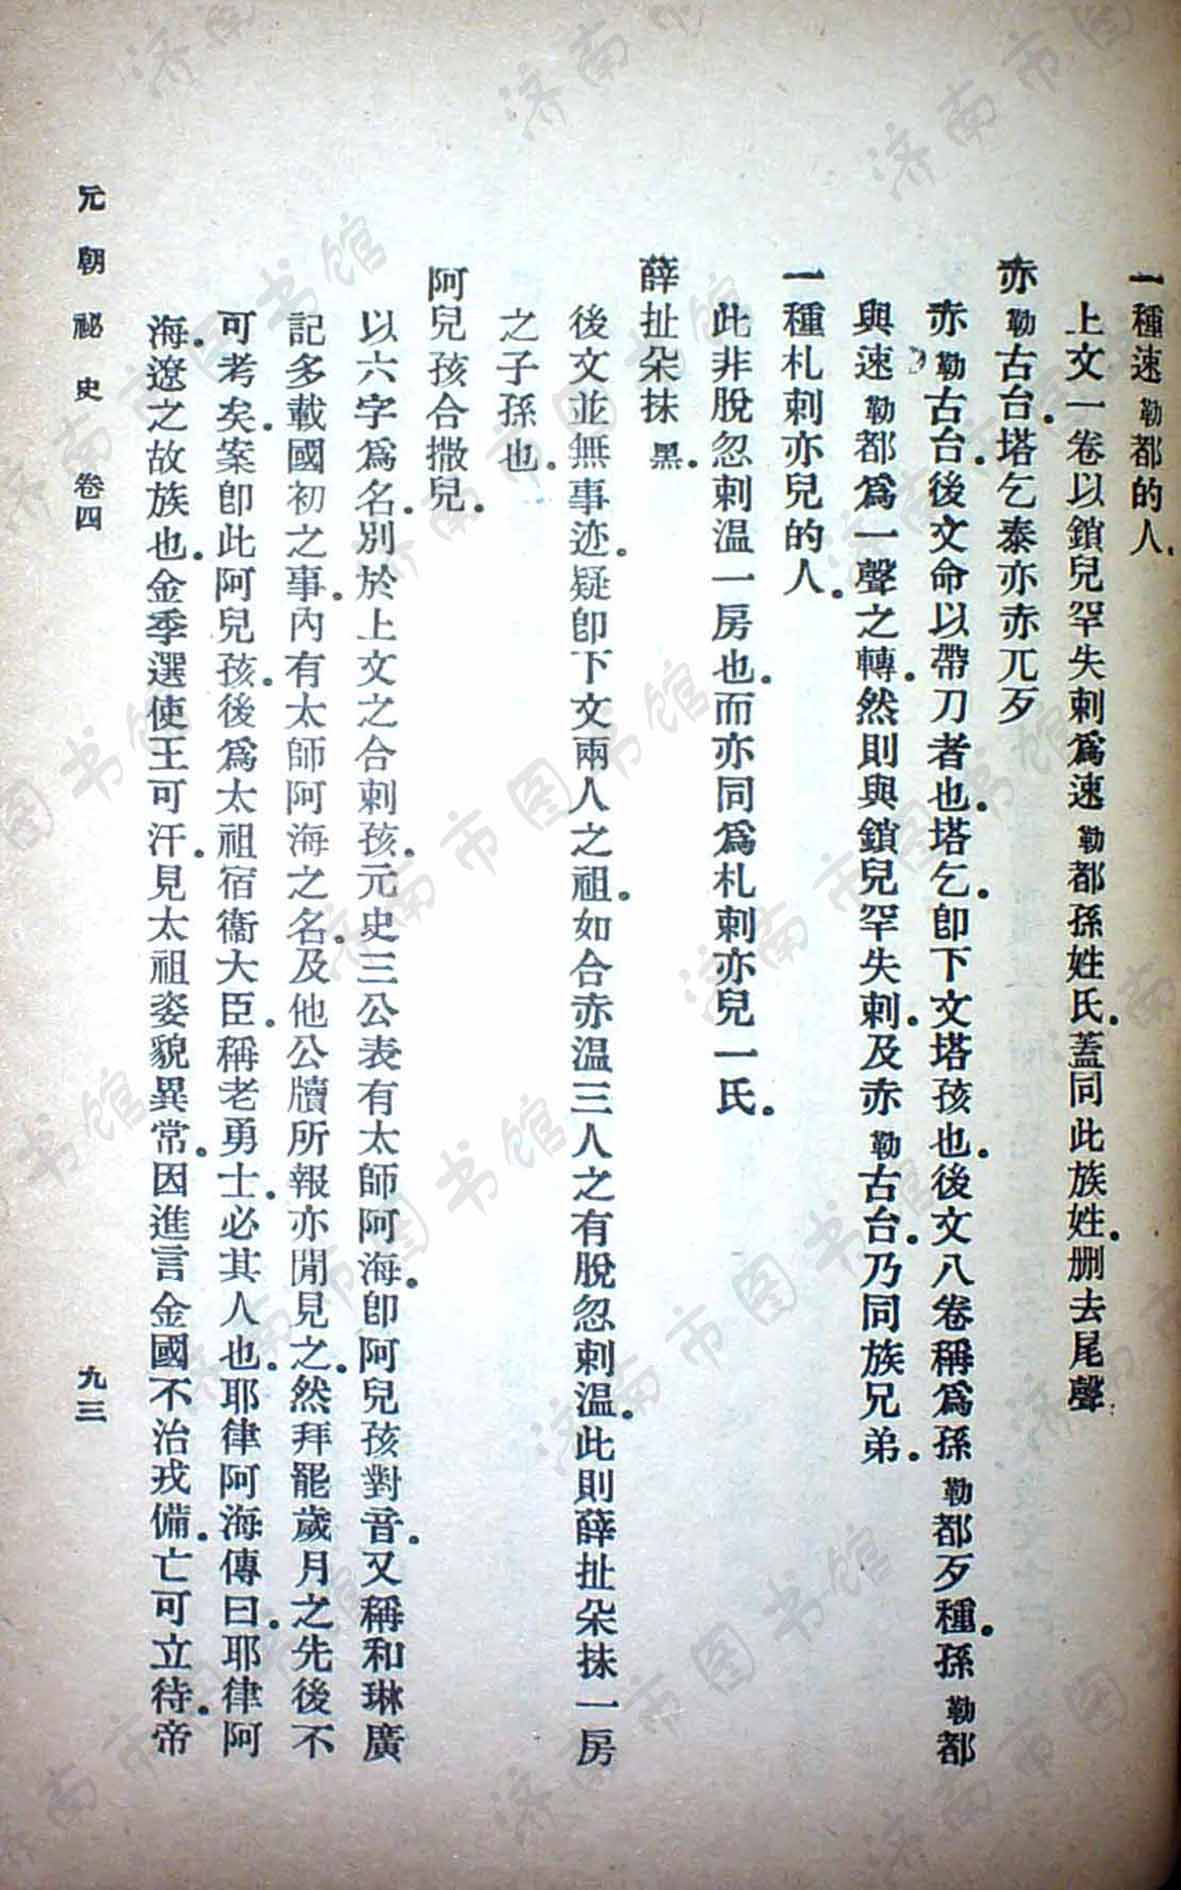 一種速勒都的人。
上文一卷以鎖兒罕失剌爲速勒都孫姓氏。蓋同此族姓。删去尾聲。
赤勒古台。塔乞泰亦赤兀歹
赤勒古台。後文命以帶刀者也。塔乞。卽下文塔孩也。後文八卷稱爲孫勒都歹種。孫勒都
與速勒都爲一聲之轉。然則與鎖兒罕失剌。及赤勒古台。乃同族兄弟。
一種札剌亦兒的人。
此非脫忽剌溫一房也。而亦同爲札剌亦兒一氏。
薛扯朵抹黑。
後文並無事迹。疑卽下文兩人之祖。如合赤溫三人之有脫忽剌溫。此則薛扯朵抹一房
之子孫也。
阿兒孩合撒兒。
以六字爲名。別於上文之合剌孩。元史三公表有太師阿海。卽阿兒孩對音。又稱和琳廣
記多載國初之事。內有太師阿海之名。及他公牘所報亦閒見之。然拜罷歲月之先後不
可考矣。案卽此阿兒孩。後爲太祖宿衞大臣。稱老勇士。必其人也。耶律阿海傳曰。耶律阿
海。遼之故族也。金季選使王可汗。見太祖姿貌異常。因進言金國不治戎備。亡可立待。帝
元朝祕史 卷四
九三
济南市图书馆